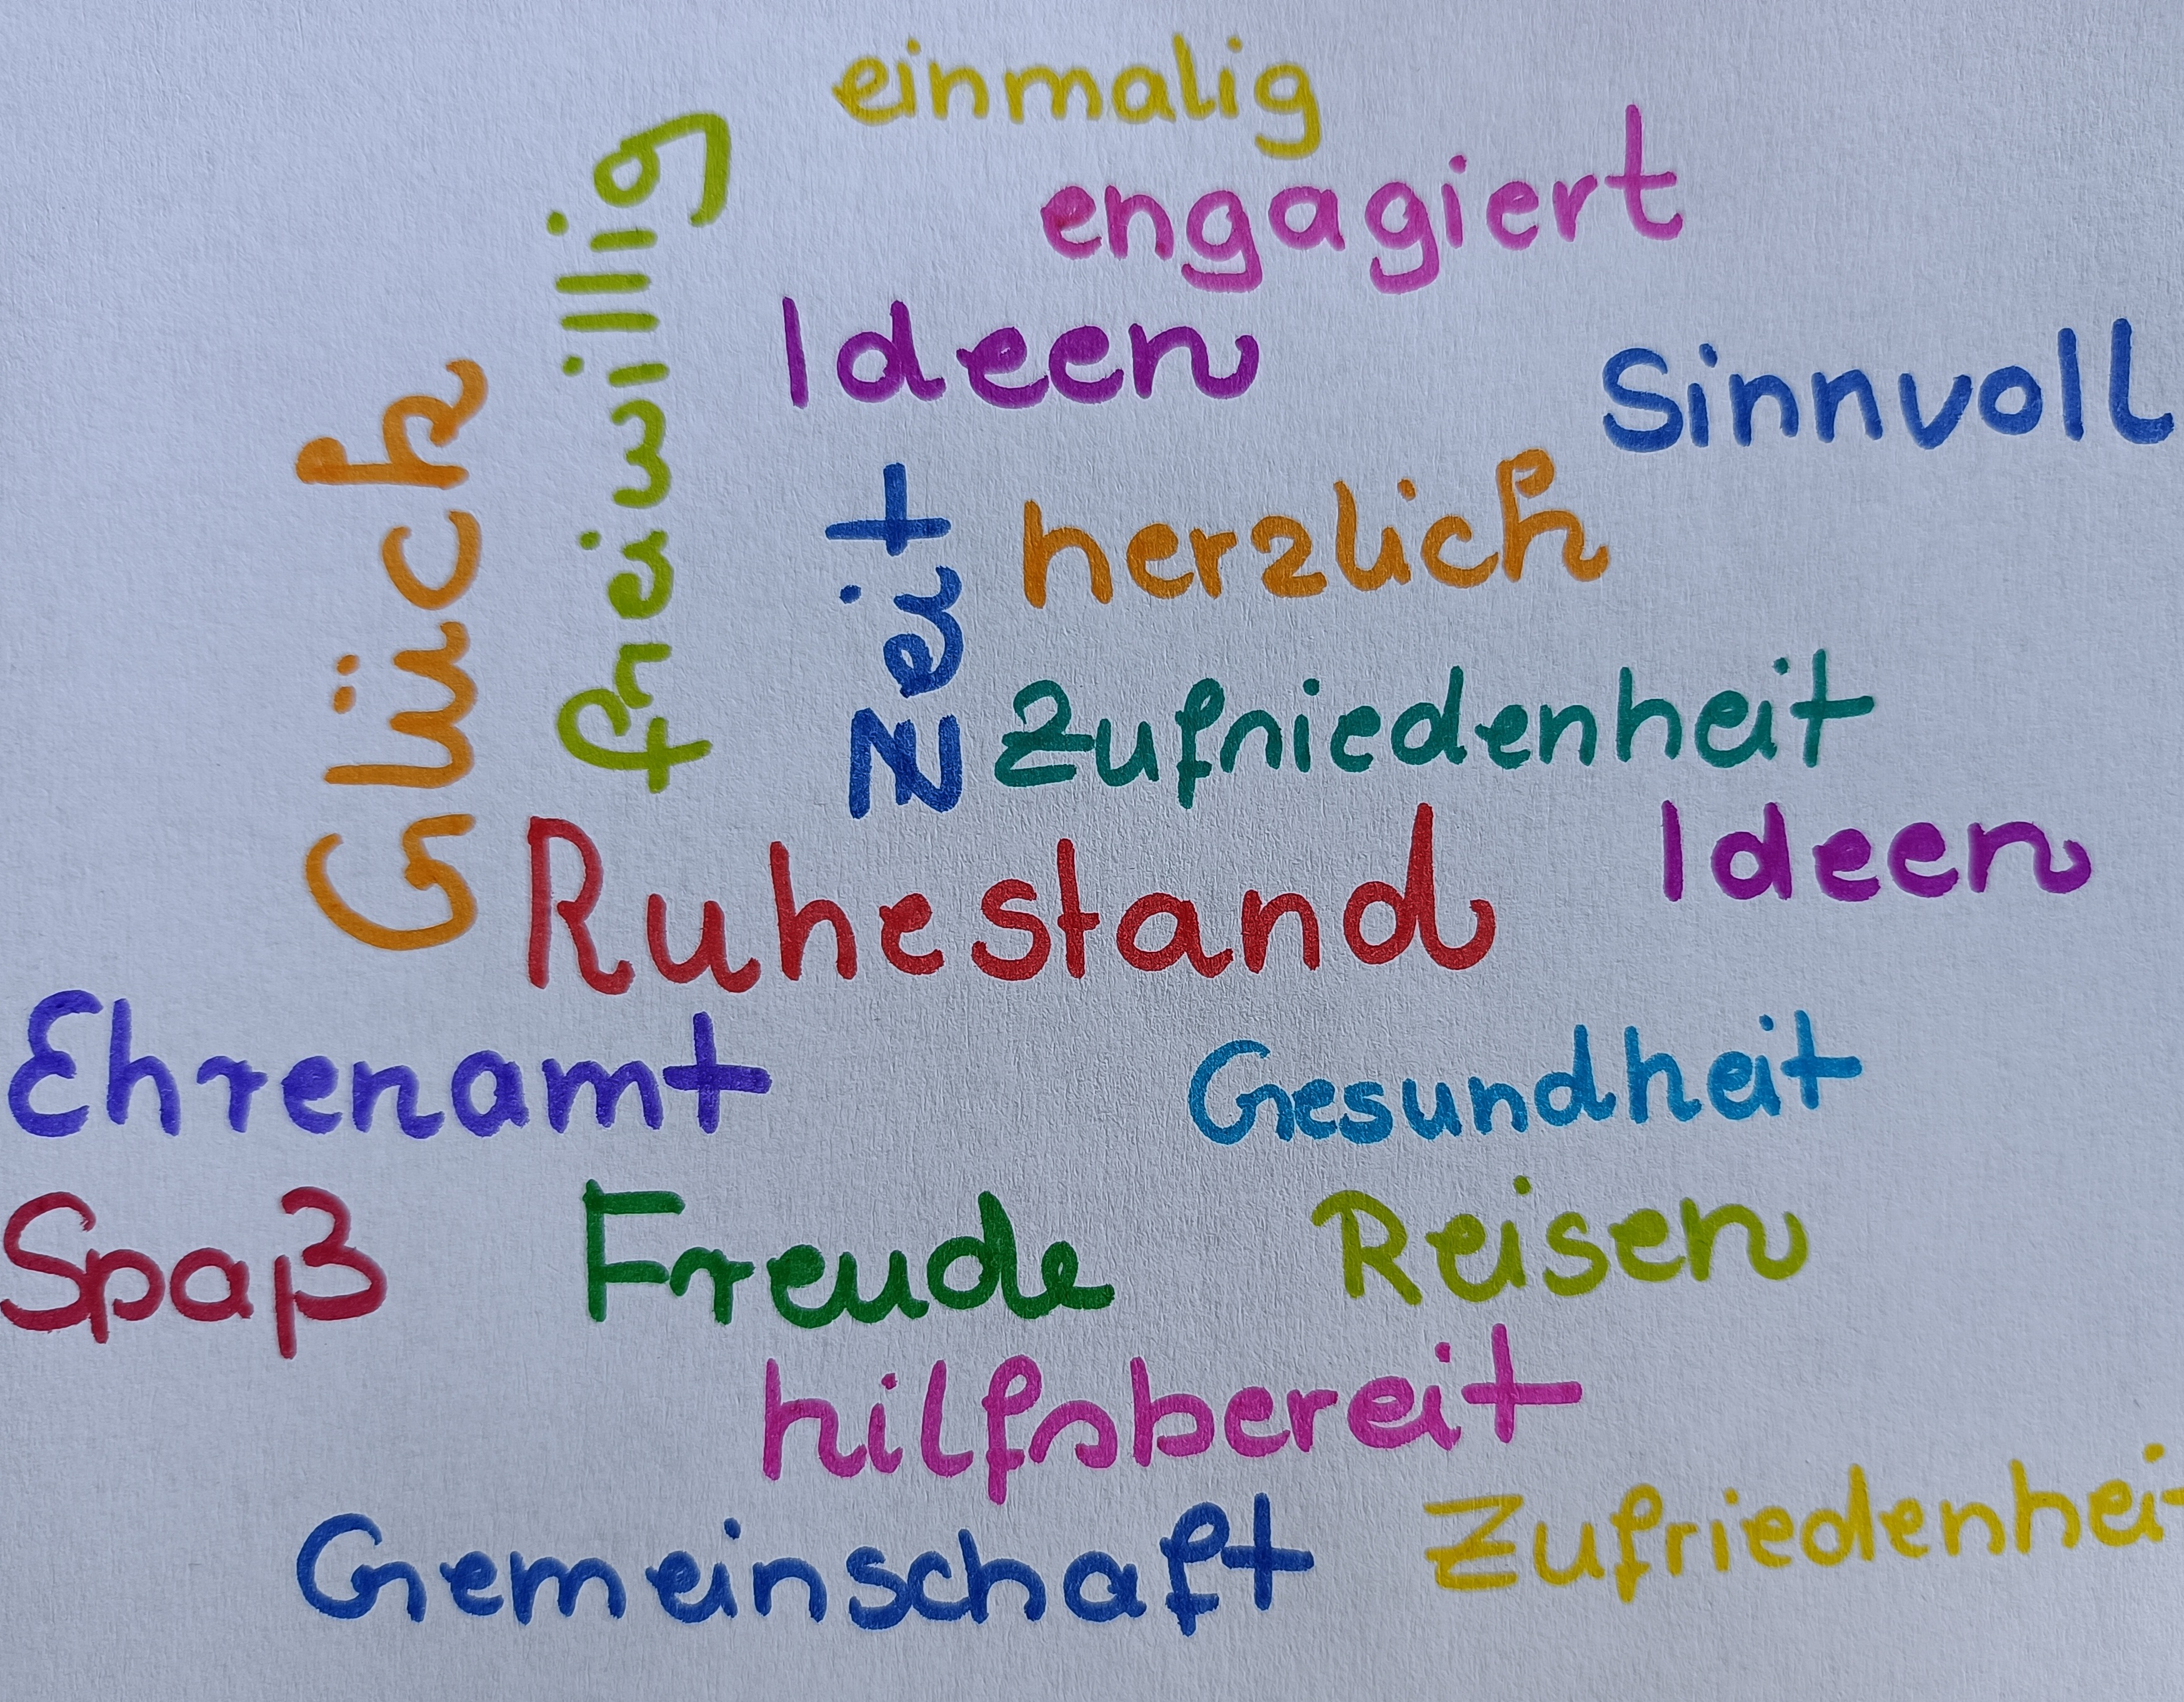 einmalig
engagiert
freiwillig
Ideen
Sinnvoll
Glück
Zeit
herzlich
Zufriedenheit
Ideen
Ruhestand
Ehrenamt
Gesundheit
Spaß
Freude
Reisen
hilfsbereit
Gemeinschaft
Zufriedenheit